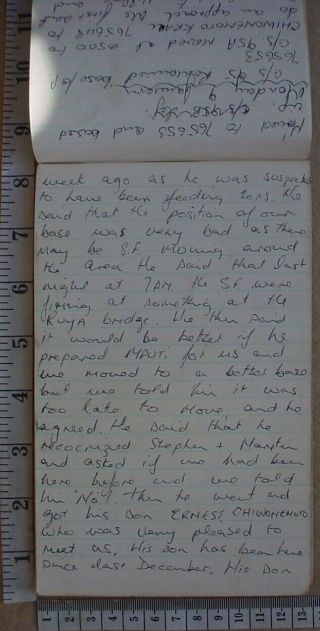 Moved to 765653 and based
up.
Monday 9 January
c/s 9S base/op.
765653
c/s 9SA moved at 0500 to
CHIWONEMOTO KRAAL 765648 to
do an We first
week ago as he was suspected
to have been feeding ters. He
said that the position of our
base was very bad as there
may be S.F moving around
the area He said that last
night at 7AM the S.F were
firing at something at the
RUYA bridge. He then said
it would be better if he
prepared MPUT. for us and
we moved to a better base
but we told him it was
too late to move, and he
agreed. He said that he
recognized Stephen + Martin
and asked if we had been
here before and we told
him 'No'! then he went and
got his son ERNEST CHIWONEMOTO
who was very pleased to
meet us. His son has been here
since last December. His son
9
8
7
6
5
4
3
2
1
1 2 3 4 5 6 7 8 9 10 11 12 13